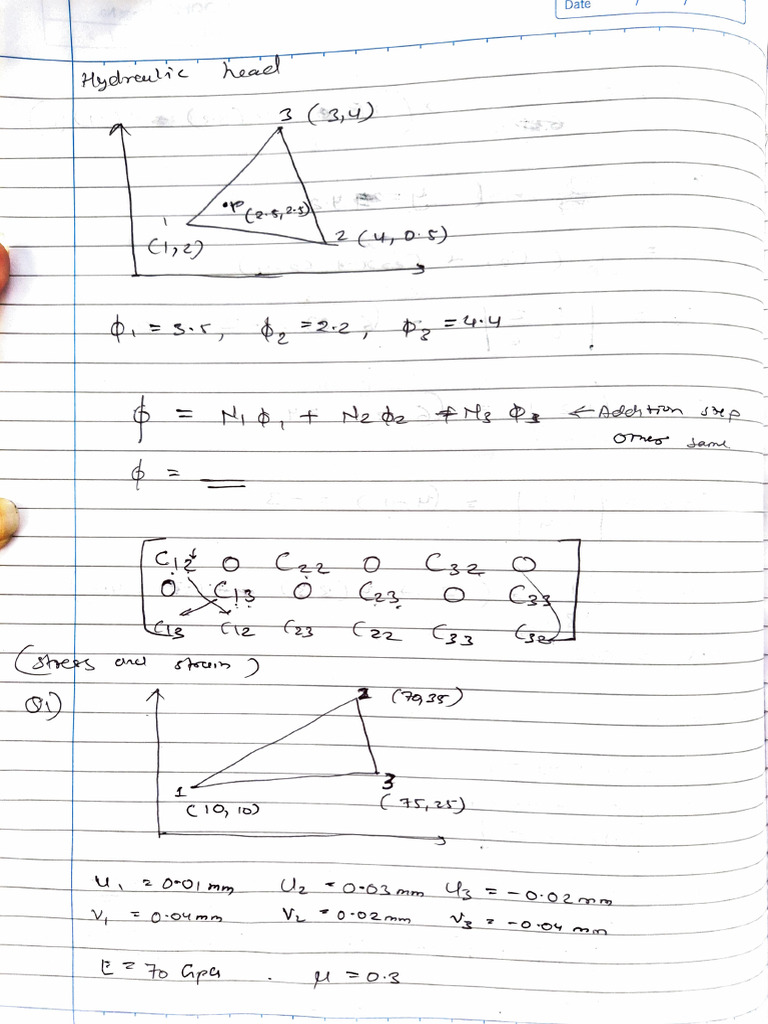 Date / /
Hydraulic head
3 (3,4)
•P (2.5, 2.5)
1
(1,2)
2 (4, 0.5)
ϕ₁ = 3.5, ϕ₂ = 2.2, ϕ₃ = 4.4
ϕ = N₁ϕ₁ + N₂ϕ₂ + N₃ϕ₃ ← Addition step
other same
ϕ = __
C12 0 C22 0 C32 0
0 C13 0 C23 0 C33
C13 C12 C23 C22 C33 C32
(stress and strain)
Q1)
2 (70,35)
1
(10,10)
3
(75,25)
u₁ = 0.01mm u₂ = 0.03mm u₃ = -0.02mm
v₁ = 0.04mm v₂ = 0.02mm v₃ = -0.04mm
E = 70 Gpa . μ = 0.3